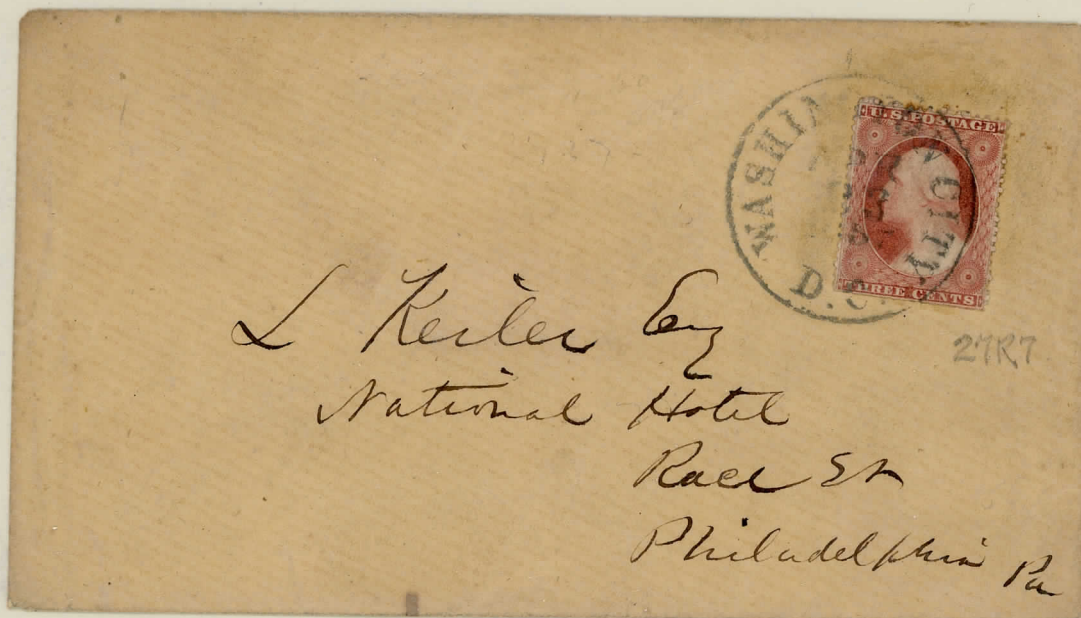 WASHINGTON CITY
D.C.
U.S. POSTAGE
THREE CENTS
27R7
L Keiler Esq
National Hotel
Race St
Philadelphia Pa